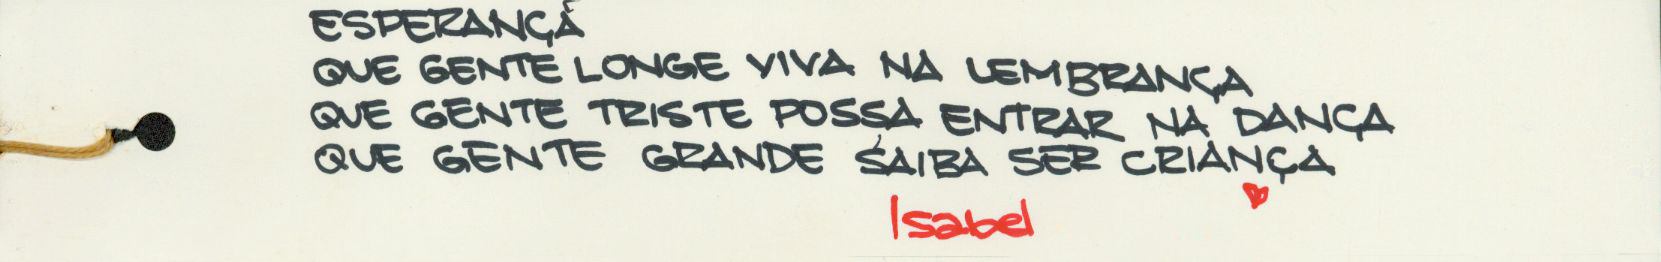 ESPERANÇA
QUE GENTE LONGE VIVA NA LEMBRANÇA
QUE GENTE TRISTE POSSA ENTRAR NA DANÇA
QUE GENTE GRANDE SAIBA SER CRIANÇA
Isabel